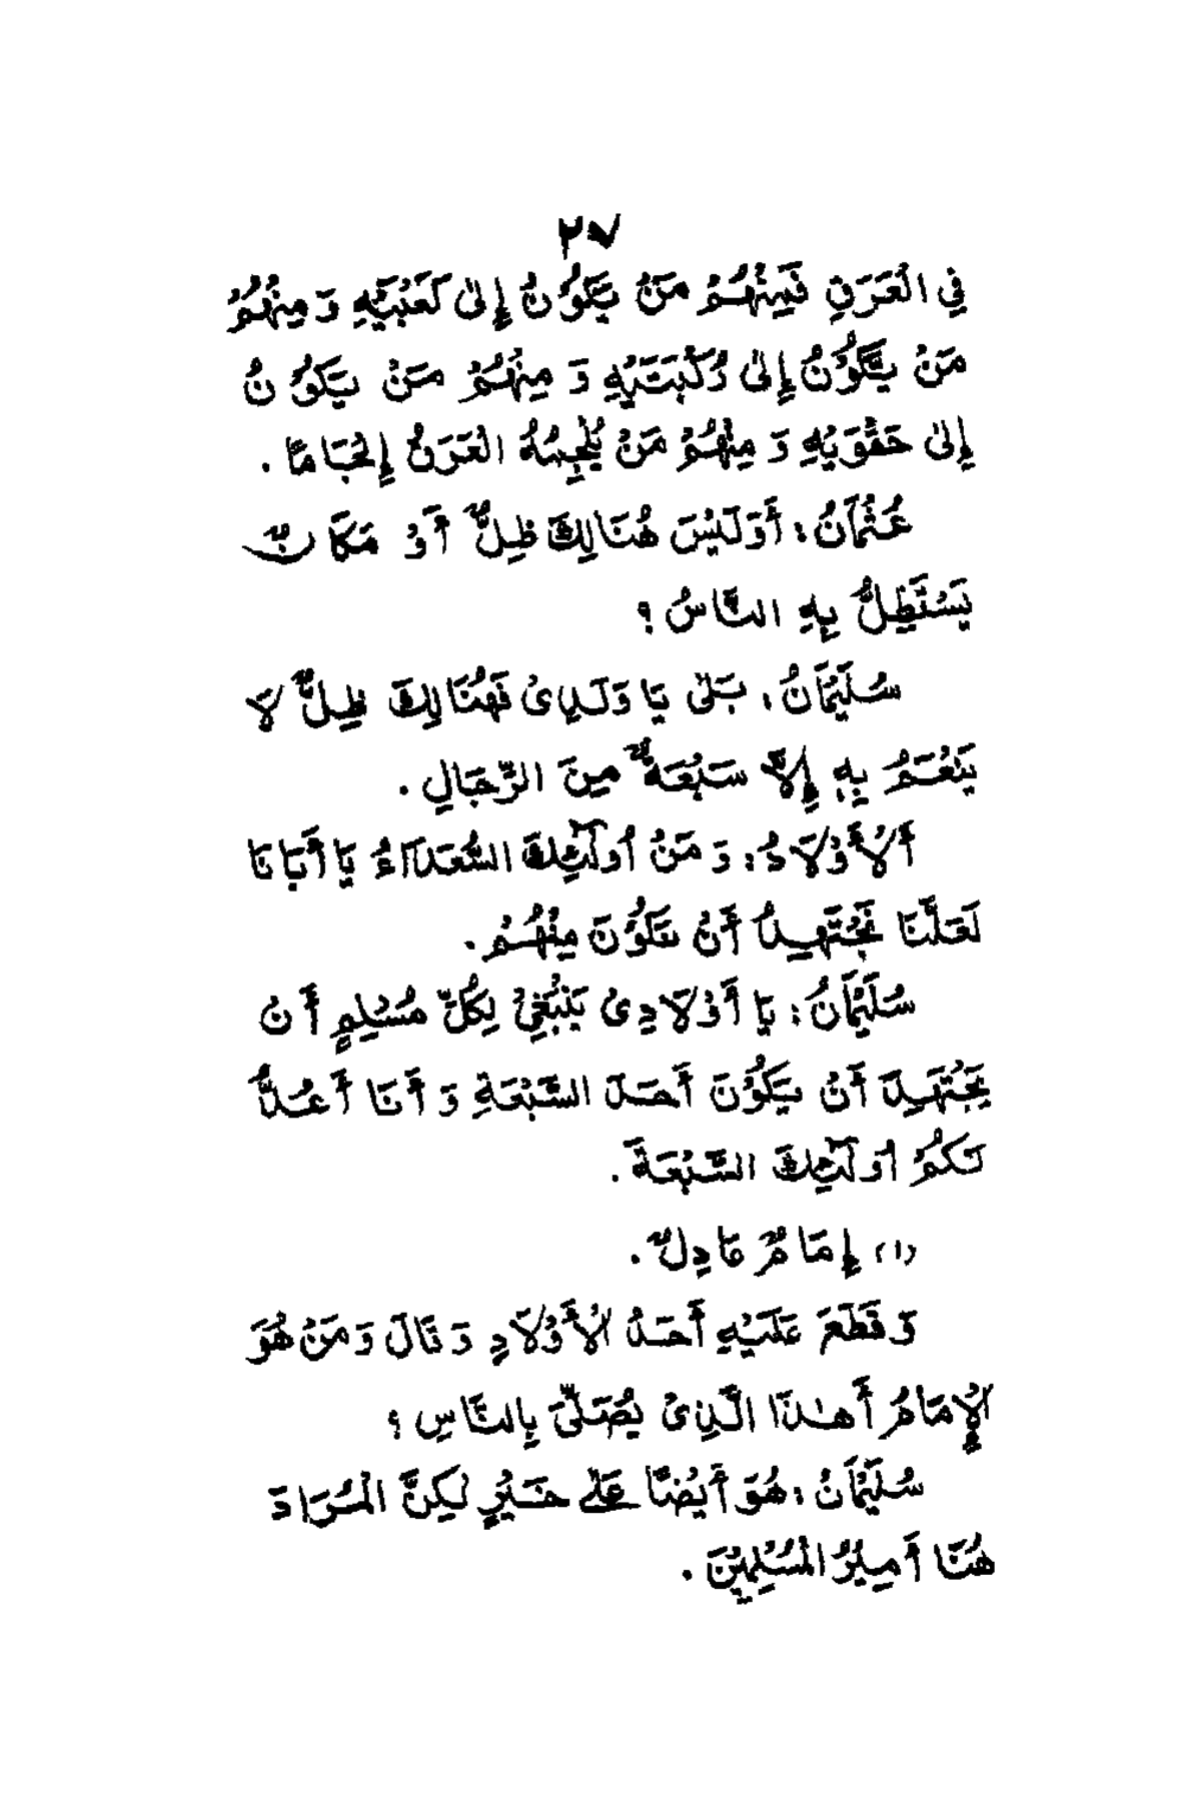 ٢٧
فِي الْعَرَقِ فَمِنْهُمْ مَنْ يَكُوْنُ إِلىٰ كَعْبَيْهِ وَ مِنْهُمْ
مَنْ يَكُوْنُ إِلىٰ رُكْبَتَيْهِ وَ مِنْهُمْ مَنْ يَكُوْنُ
إِلىٰ حَقْوَيْهِ وَ مِنْهُمْ مَنْ يُلْجِمُهُ الْعَرَقُ إِلْجَامًا .
عُثْمَانُ : أَوَلَيْسَ هُنَالِكَ ظِلٌّ أَوْ مَكَانٌ
يَسْتَظِلُّ بِهِ النَّاسُ ؟
سُلَيْمَانُ : بَلىٰ يَا وَلَدِىْ فَهُنَالِكَ ظِلٌّ لَا
يَنْعَمُ بِهِ إِلَّا سَبْعَةٌ مِنَ الرِّجَالِ .
أَلْأَوْلَادُ : وَ مَنْ أُولٰٓئِكَ السُّعَدَآءُ يَا أَبَانَا
لَعَلَّنَا نَجْتَهِدُ أَنْ نَكُوْنَ مِنْهُمْ .
سُلَيْمَانُ : يَا أَوْلَادِىْ يَنْبَغِىْ لِكُلِّ مُسْلِمٍ أَنْ
يَجْتَهِدَ أَنْ يَكُوْنَ أَحَدَ السَّبْعَةِ وَ أَنَا أَعُدُّ
لَكُمْ أُولٰٓئِكَ السَّبْعَةَ .
(١) إِمَامٌ عَادِلٌ .
وَ قَطَعَ عَلَيْهِ أَحَدُ الْأَوْلَادِ وَ قَالَ وَ مَنْ هُوَ
الْإِمَامُ أَهٰذَا الَّذِىْ يُصَلِّىْ بِالنَّاسِ ؟
سُلَيْمَانُ : هُوَ أَيْضًا عَلىٰ خَيْرٍ لٰكِنَّ الْمُرَادَ
هُنَا أَمِيْرُ الْمُسْلِمِيْنَ .